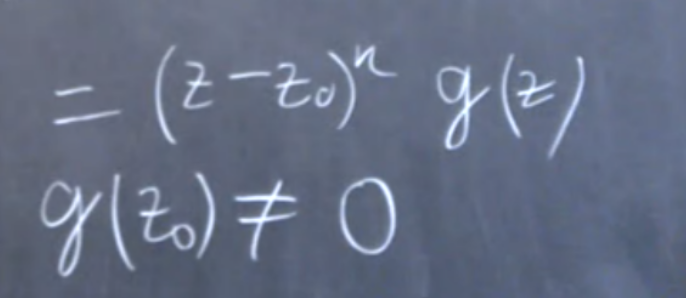 = (z-z₀)ⁿ g(z)
g(z₀) ≠ 0